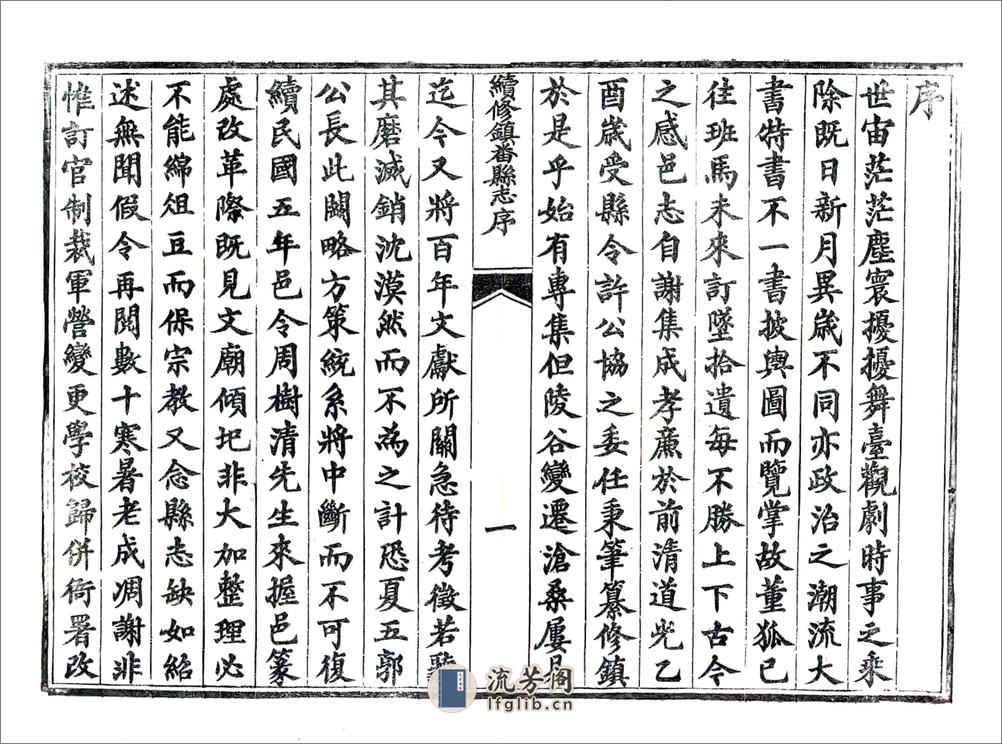 序
世宙茫茫塵寰擾擾舞臺觀劇時事之乘
除既日新月異歲不同亦政治之潮流大
書特書不一書披輿圖而覽掌故董狐已
往班馬未來訂墜拾遺每不勝上下古今
之感邑志自謝集成孝亷於前清道光乙
酉歲受縣令許公協之委任秉筆纂修鎮
於是乎始有專集但陵谷變遷滄桑屢
續修鎮番縣志序
一
迄今又將百年文獻所關急待考徵若聽
其磨滅銷沈漠然而不為之計恐夏五郭
公長此闕略方策統系將中斷而不可復
續民國五年邑令周樹清先生來握邑篆
處改革際既見文廟傾圯非大加整理必
不能綿俎豆而保宗教又念縣志缺如紹
述無聞假令再閱數十寒暑老成凋謝非
惟訂官制裁軍營變更學校歸併衙署改
流芳阁
lfglib.cn